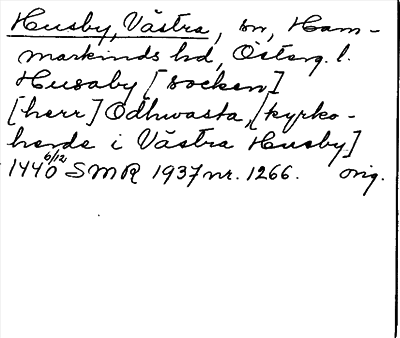 Husby, Västra, sn, Ham-
markinds hd, Österg. l.
Husaby [socken]
[herr] Odhwasta, [kyrko-
herde i Västra Husby]
1440 6/12 SMR 1937 nr. 1266. orig.